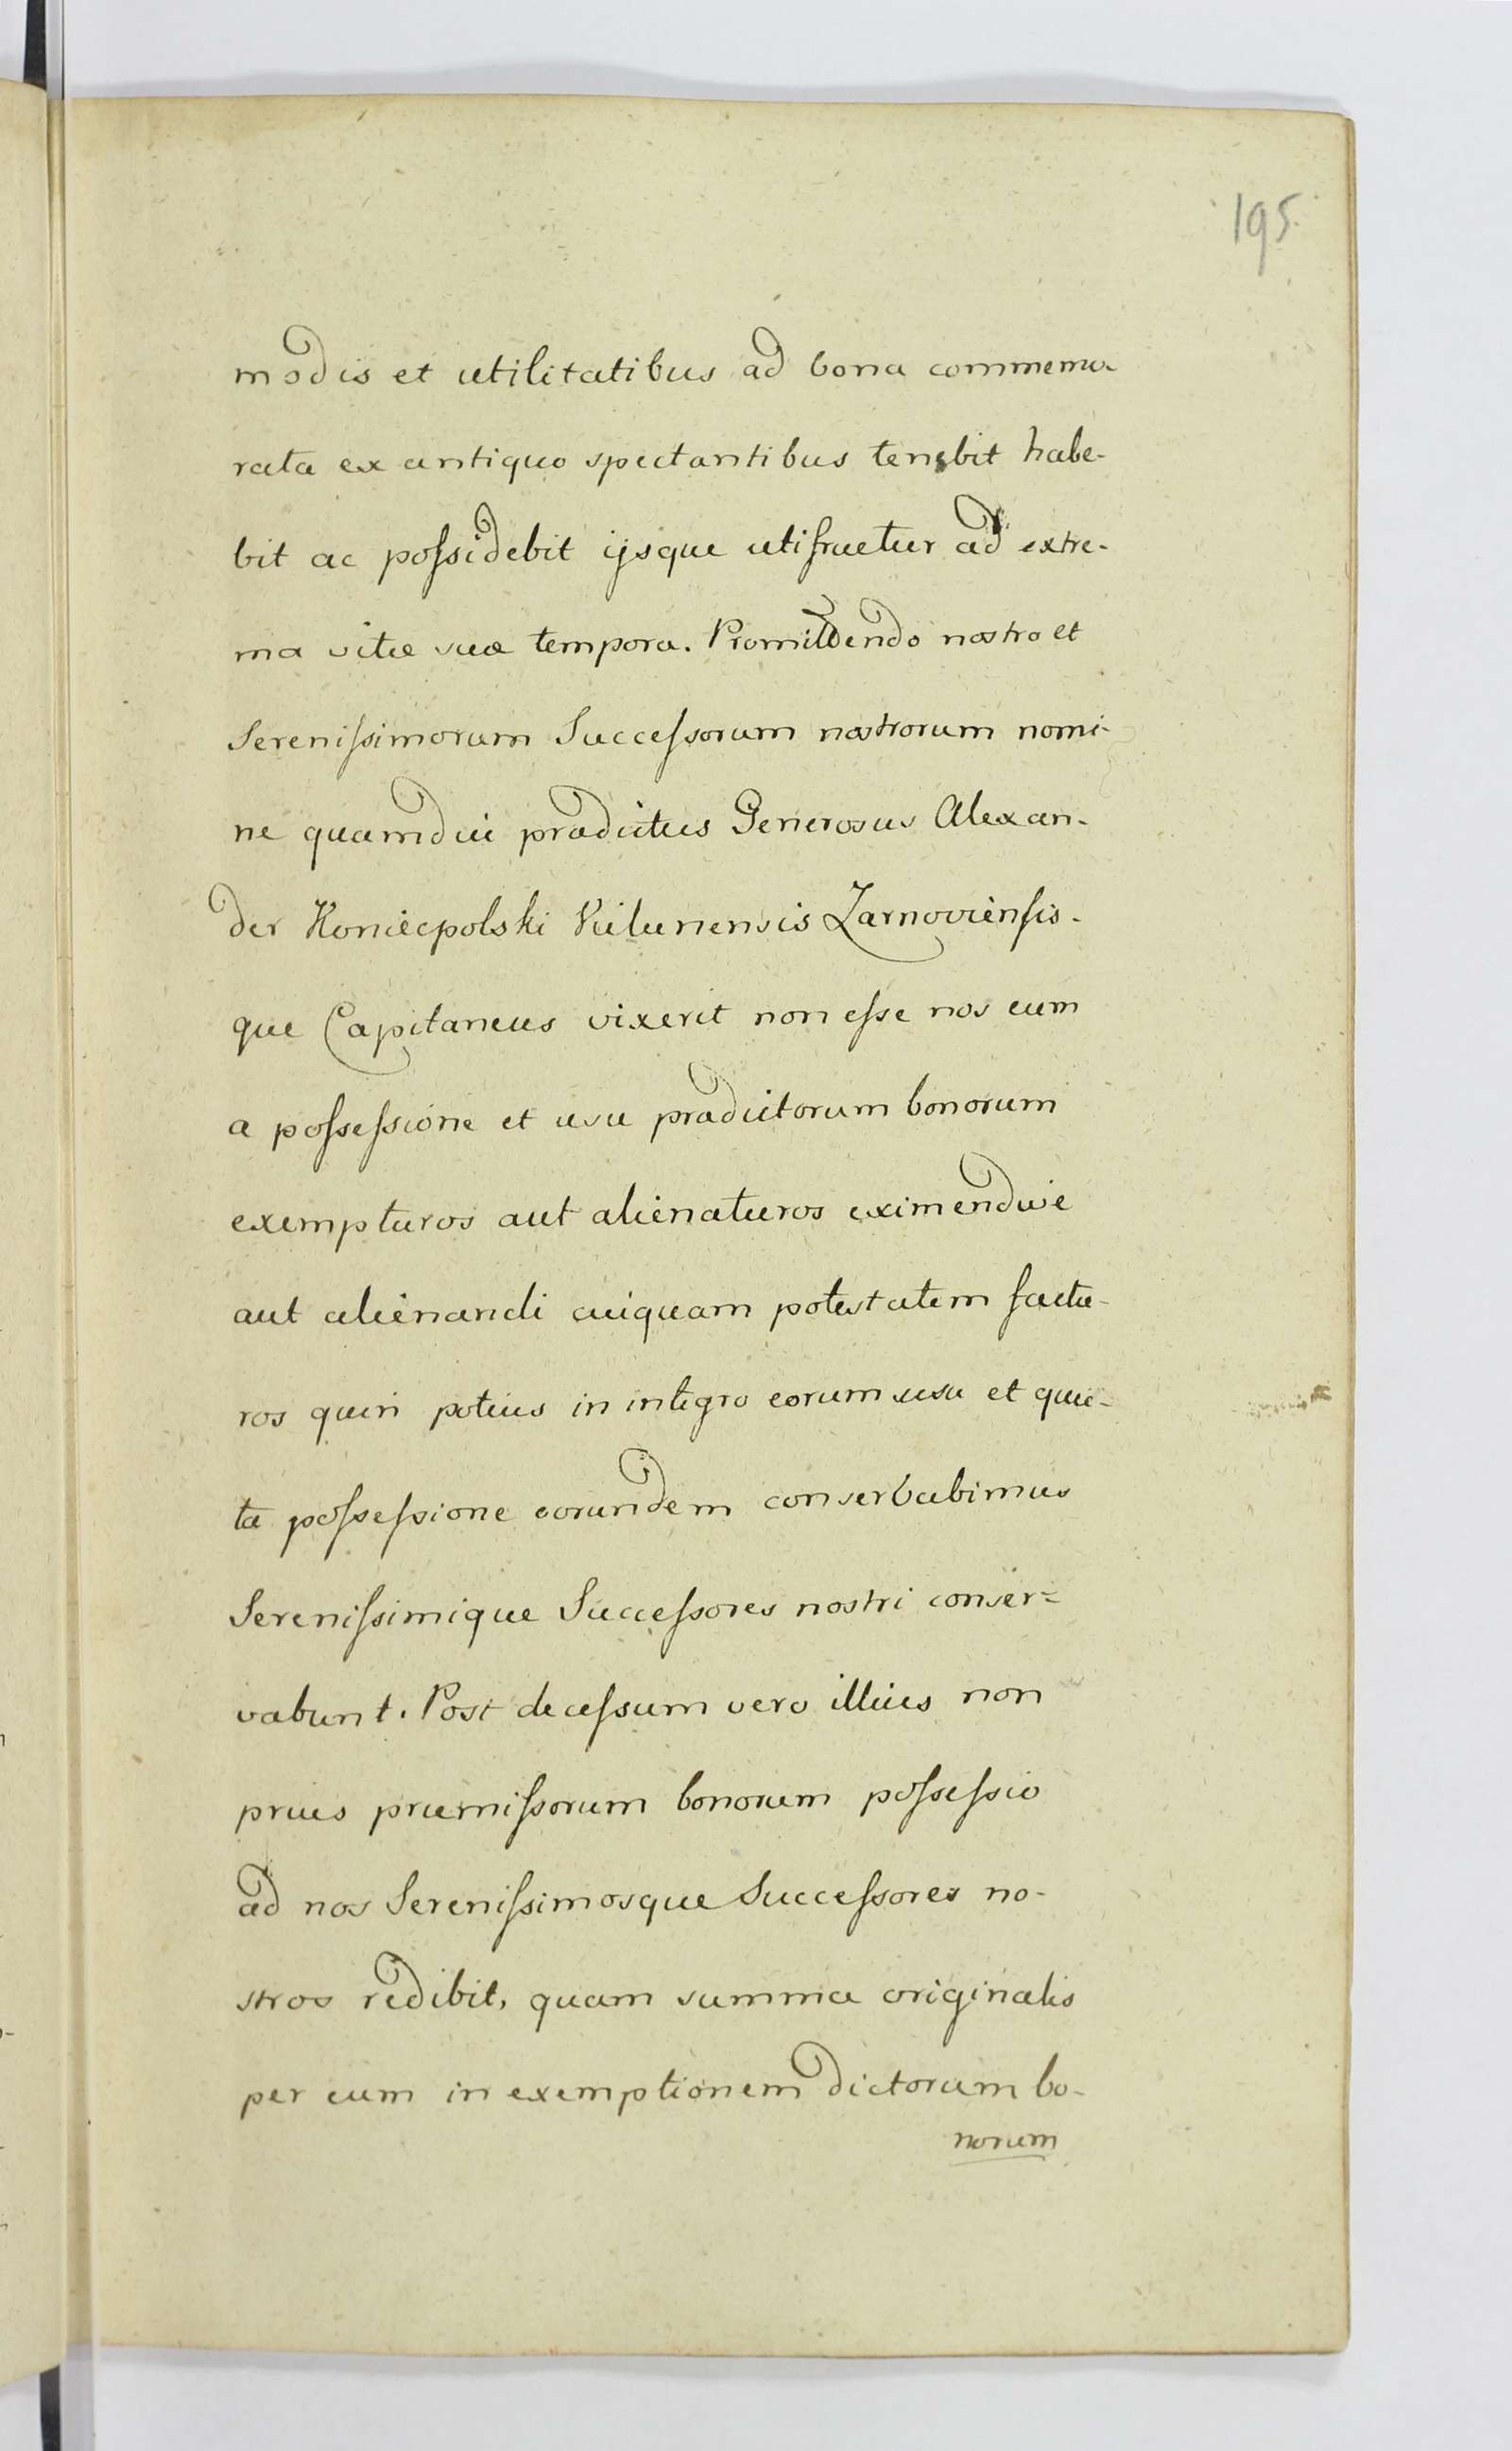 195.
modis et utilitatibus ad bona commemo-
rata ex antiquo spectantibus tenebit habe-
bit ac possidebit ijsque utifruetur ad extre-
ma vitæ suæ tempora. Promittendo nostro et
Serenissimorum Successorum nostrorum nomi-
ne quamdiu prædictus Generosus Alexan-
der Koniecpolski Vielunensis Zarnoviensis-
que Capitaneus vixerit non esse nos eum
a possessione et usu prædictorum bonorum
exempturos aut alienaturos eximendive
aut alienandi cuiquam potestatem factu-
ros quin potius in integro eorum usu et quie-
ta possessione eorundem conservabimus
Serenissimique Successores nostri conser=
vabunt. Post decessum vero illius non
prius præmissorum bonorum possessio
ad nos Serenissimosque Successores no-
stros redibit, quam summa originalis
per eum in exemptionem dictorum bo-
norum